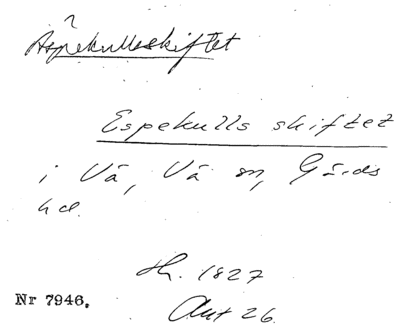 ?
Äspekullsskiftet
Espekulls skiftet
i Vä, Vä sn, Gärds
hd.
h. 1827
Akt 26.
Nr 7946.